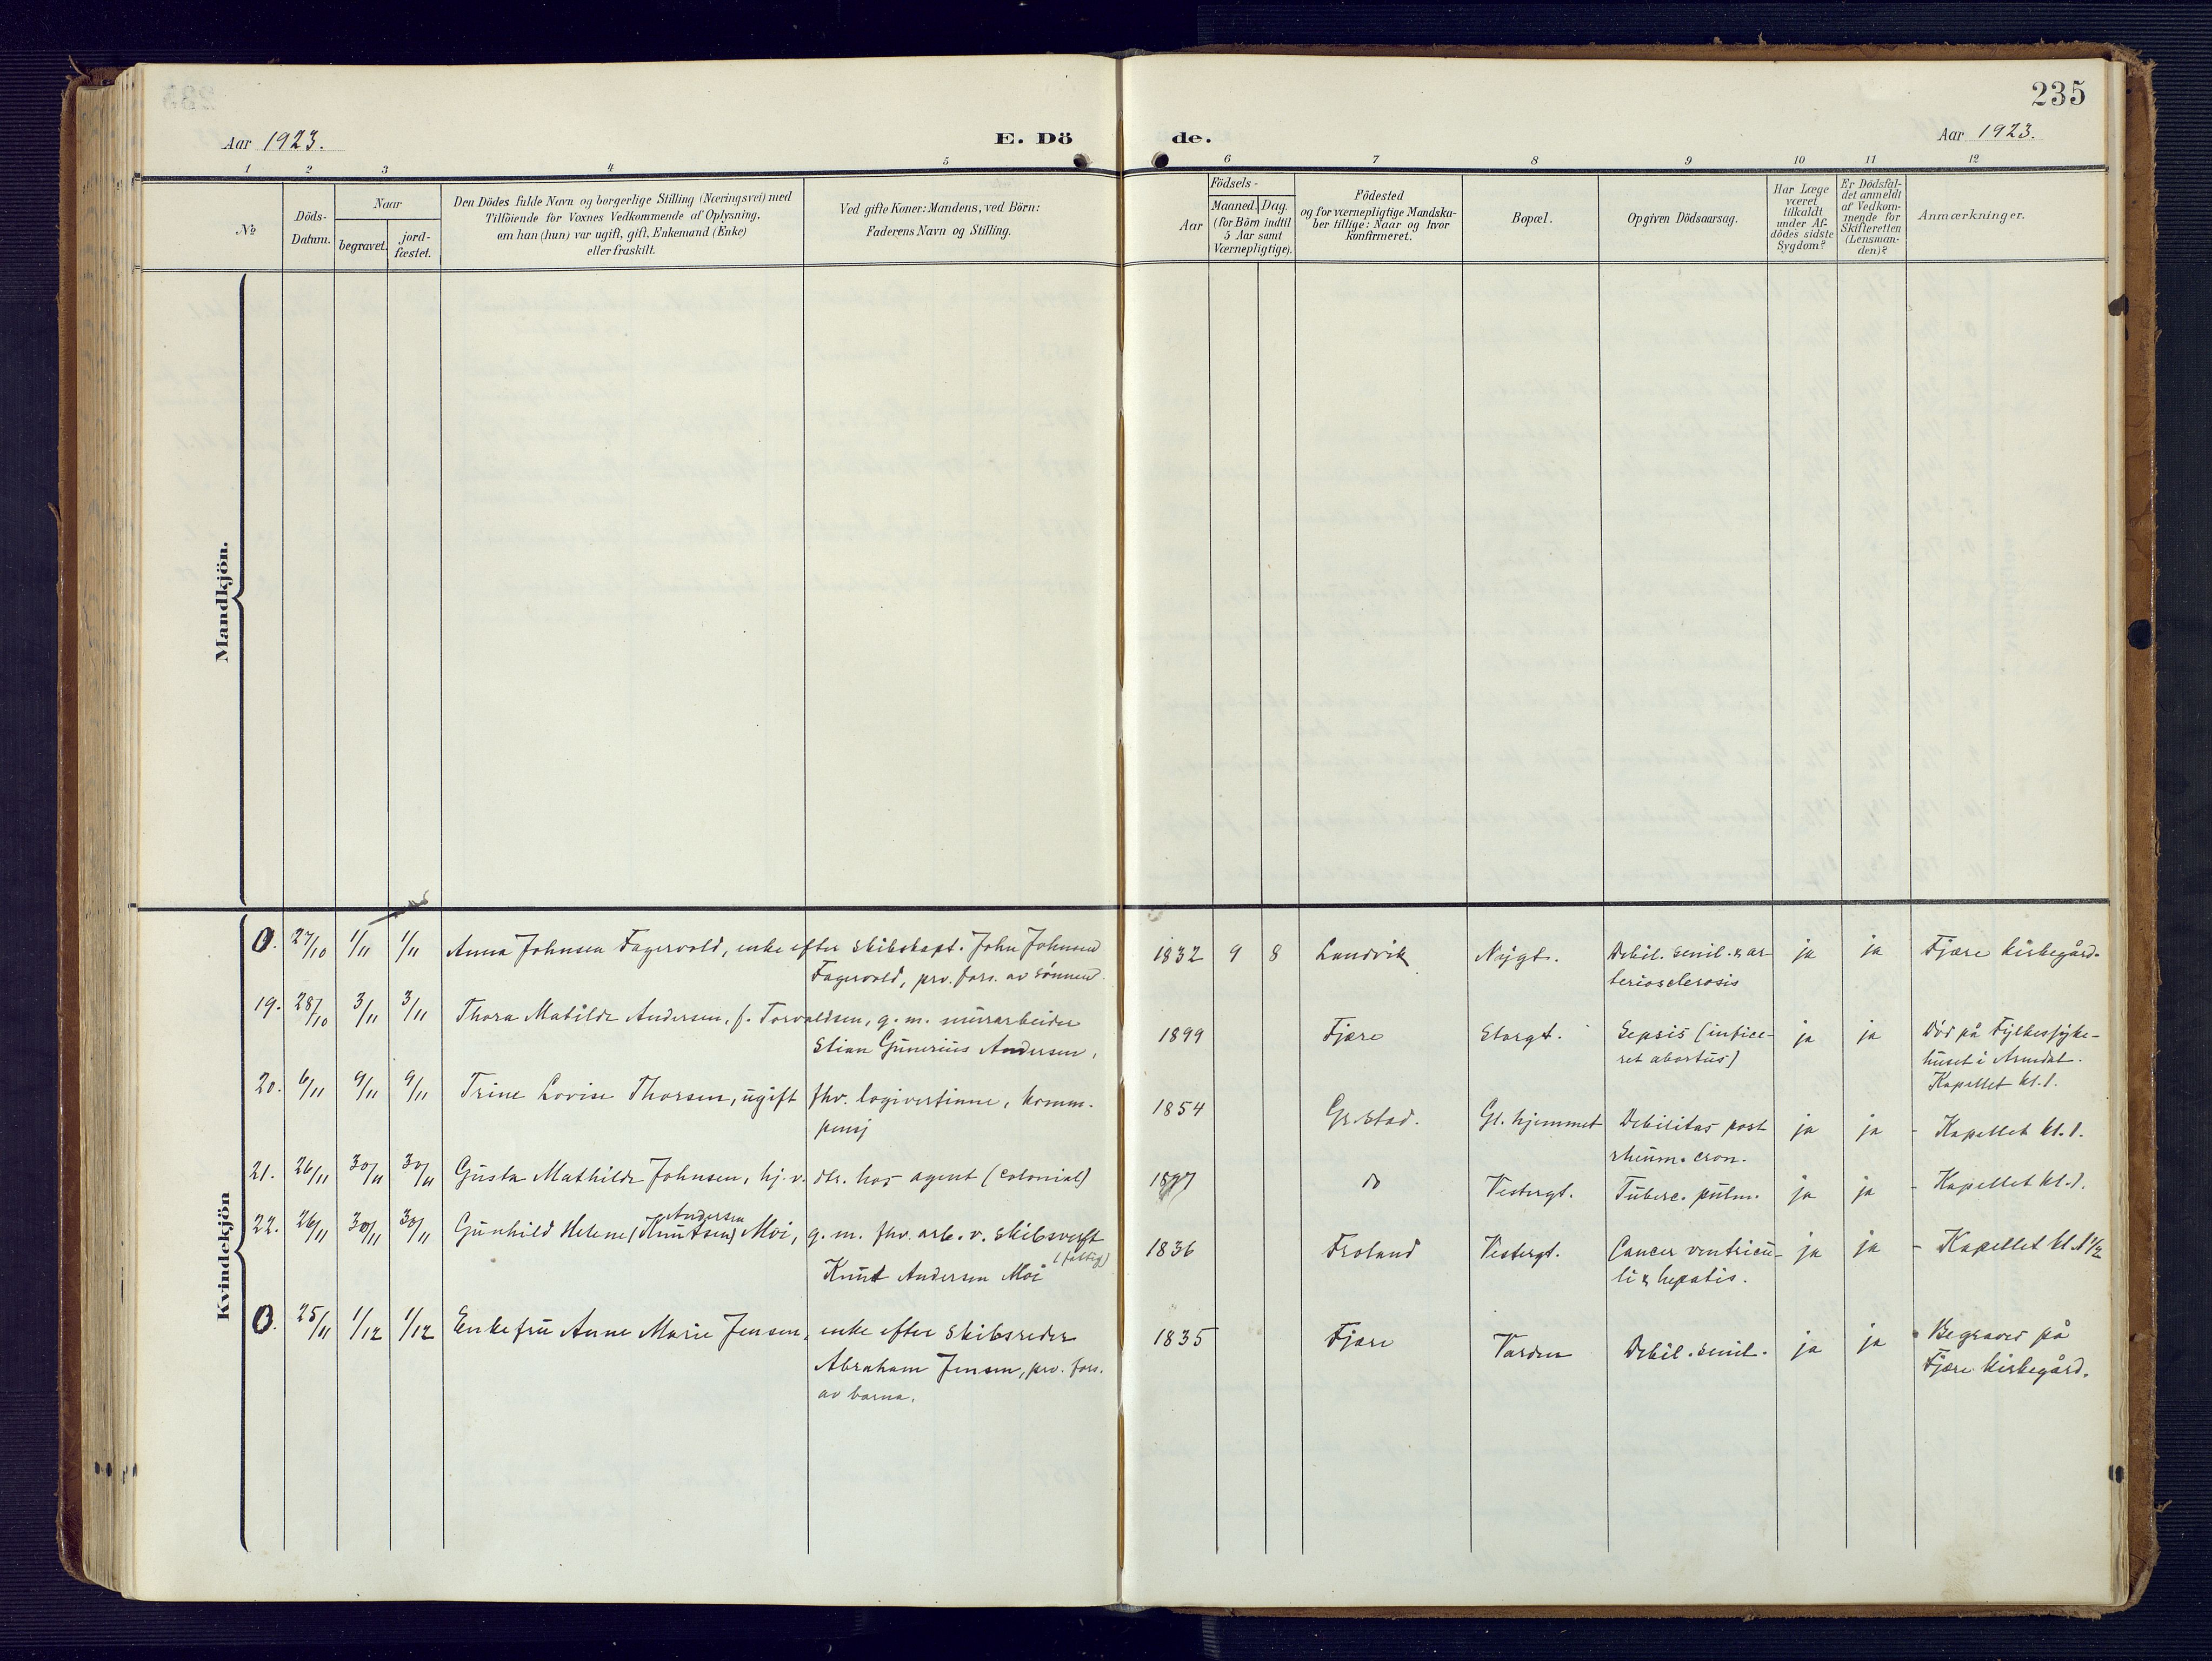 235
Aar 1923.
E. Dö
de.
Aar 1923.
1 2 3 4 5 6 7 8 9 10 11 12
No
Döds-
Datum.
Naar
begravet.
jord-
fæstet.
Den Dödes fulde Navn og borgerlige Stilling (Næringsvei) med
Tilföiende for Voxnes Vedkommende af Oplysning,
om han (hun) var ugift, gift, Enkemand (Enke)
eller fraskilt.
Ved gifte Koner: Mandens, ved Börn:
Faderens Navn og Stilling.
Födsels-
Aar
Maaned.
Dag.
(for Börn indtil
5 Aar samt
Værnepligtige).
Födested
og for værnepligtige Mandska-
ber tillige: Naar og hvor
konfirmeret.
Bopæl.
Opgiven Dödsaarsag.
Har Læge
været
tilkaldt
under Af-
dödes sidste
Sygdom?
Er Dödsfal-
det anmeldt
af Vedkom-
mende for
Skifteretten
(Lensman-
den)?
Anmærkninger.
Mandkjön.
Kvindekjön
0. 27/10 1/11 1/11 Anna Johnsen Fagervold, enke efter skibskapt. John Johnsen
Fagervold, prv. fors. av sønnen
1832 9 8 Landvik Nygt. Debil. senil. & ar-
teriosclerosis
ja ja Fjære kirkegård.
19. 28/10 3/11 3/11 Thora Matilde Andersen, f. Torvaldsen, g. m. murarbeider
Stian Gunerius Andersen,
1899 Fjære Storgt. Sepsis (infice-
ret abortus)
ja ja Død på Fylkessyke-
huset i Arendal.
Kapellet kl. 1.
20. 6/11 9/11 9/11 Trine Lovise Thorsen, ugift fhv. logivertinne, komm.
pensj
1854 Gr.stad. Gl. hjemmet Debilitas post
rheum. cron.
ja ja - Kapellet kl. 1.
21. 26/11 30/11 30/11 Gusta Mathilde Johnsen, hj. v. dtr. hos agent (colonial)
do Vestergt. Tuberc. pulm. ja ja - Kapellet kl. 1.
22. 26/11 30/11 30/11 Gunhild Helene (Knutsen) Moi, g. m. fhv. arb. v. skibsverft
Andersen
(fattig)
Knut Andersen Moi
1836 Froland Vestergt. Cancer ventricu-
li & hepatis.
ja ja - Kapellet kl. 1 1/2
0. 25/11 1/12 1/12 Enkefru Anne Marie Jensen, enke efter skibsreder
Abraham Jensen, prv. fors.
av barna.
1835 Fjære Varden Debil. senil. ja ja Begraves på
Fjære kirkegård.